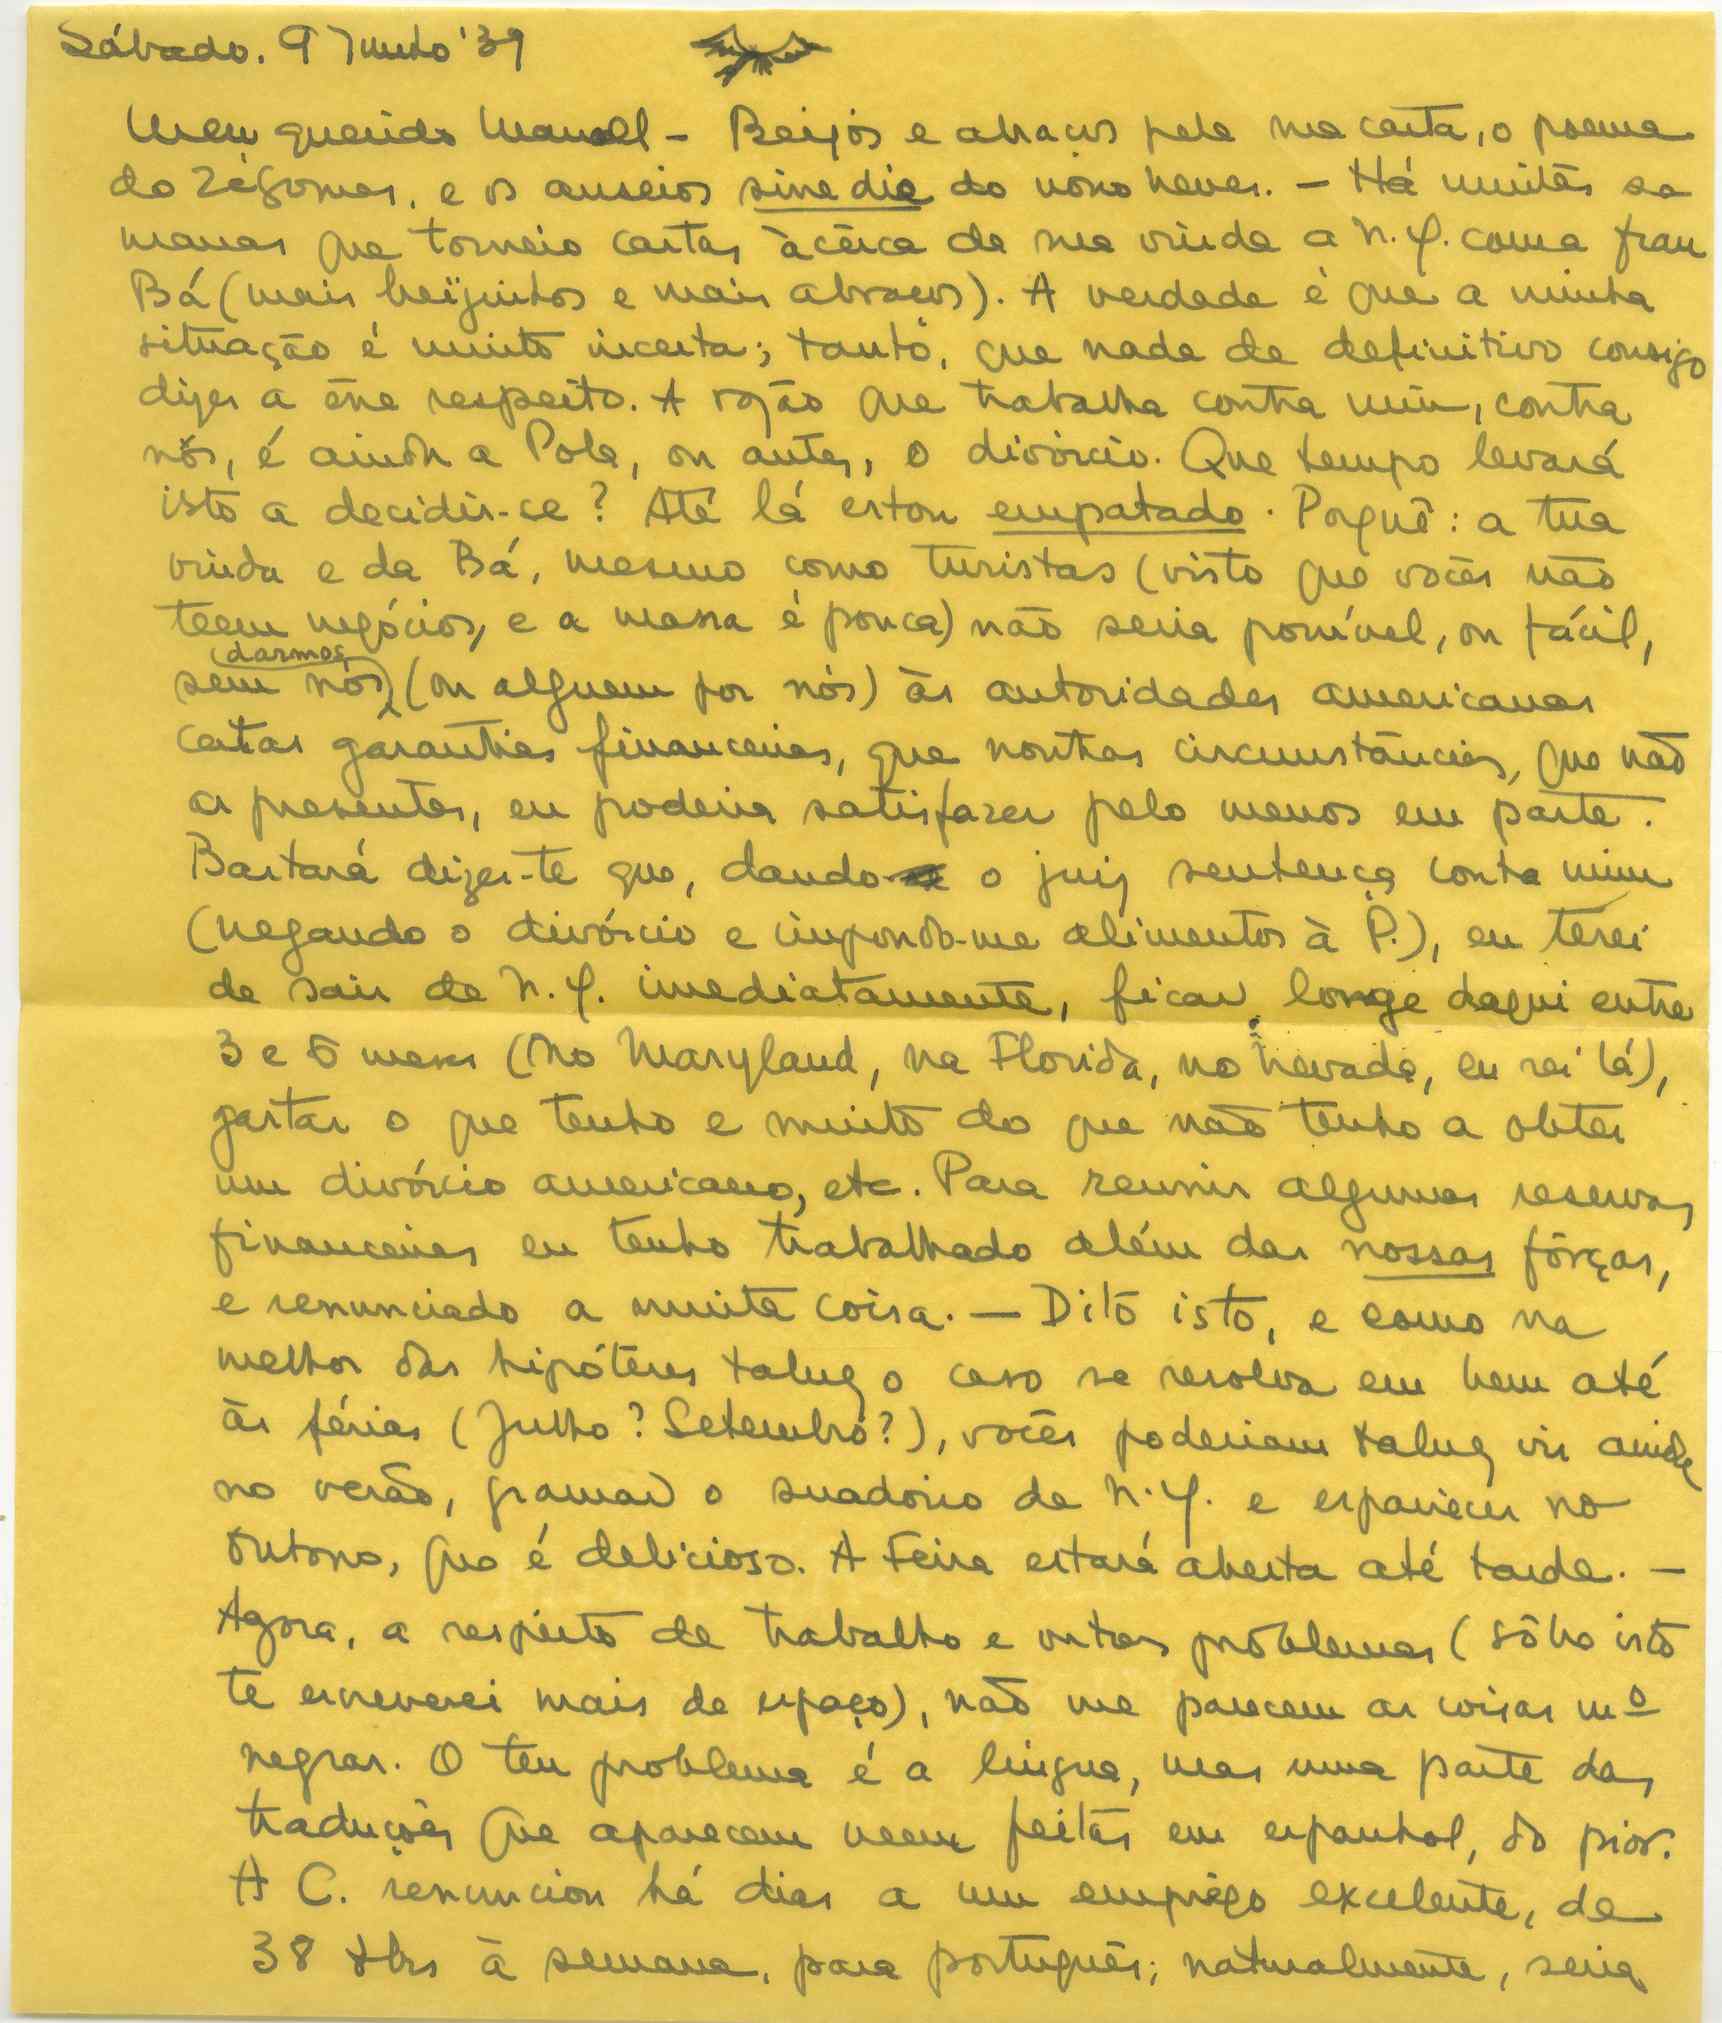 Sábado. 9 Junho '39
Meu querido Manoel - Beijos e abraços pela sua carta, o poema
do Zégomes, e os anseios sine die do nono neves. - Há muitas se
manas que torneio cartas àcêrca da sua vinda a N.Y. com a frau
Bá (mais beijinhos e mais abraços). A verdade é que a minha
situação é muito incerta; tanto, que nada de definitivo consigo
dizer a êsse respeito. A razão que trabalha contra mim, contra
nós, é ainda a Pola, ou antes, o divórcio. Que tempo levará
isto a decidir-se? Até lá estou empatado. Porquê: a tua
vinda e da Bá, mesmo como turistas (visto que vocês não
teem negócios, e a massa é pouca) não seria possível, ou fácil,
sem nós darmos (ou alguem por nós) às autoridades americanas
certas garantias financeiras, que noutras circunstâncias, que não
as presentes, eu poderia satisfazer pelo menos em parte.
Bastará dizer-te que, dando o juiz sentença contra mim
(negando o divórcio e impondo-me alimentos à P.), eu terei
de sair de N.Y. imediatamente, ficar longe daqui entre
3 e 6 meses (no Maryland, na Florida, no Nevada, eu sei lá),
gastar o que tenho e muito do que não tenho a obter
um divórcio americano, etc. Para reunir algumas reservas
financeiras eu tenho trabalhado além das nossas fôrças,
e renunciado a muita coisa. - Dito isto, e como na
melhor das hipóteses talvez o caso se resolva em bem até
às férias (Julho? Setembro?), vocês poderiam talvez vir ainda
no verão, gramar o suadoiro de N.Y. e espairecer no
Outono, que é delicioso. A Feira estará aberta até tarde. -
Agora, a respeito de trabalho e outros problemas (sôbre isto
te escreverei mais de espaço), não me parecem as coisas mº
negras. O teu problema é a lingua, mas uma parte das
traduções que aparecem veem feitas em espanhol, do pior.
A C. renunciou há dias a um emprêgo excelente, de
38 dlrs à semana, para português; naturalmente, seria